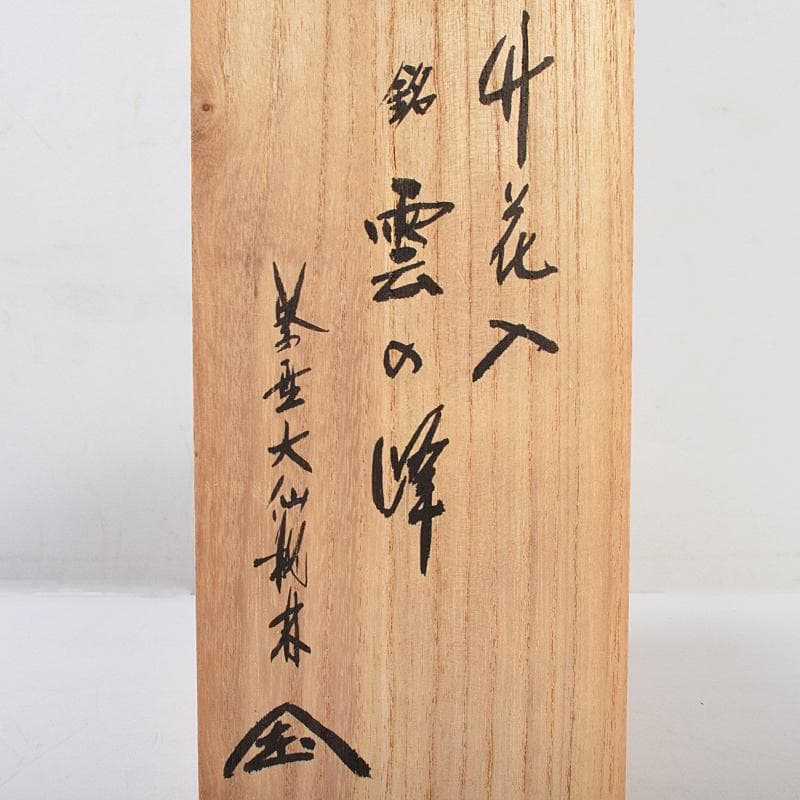 竹花入
銘 雲の峰
紫野大仙桃林